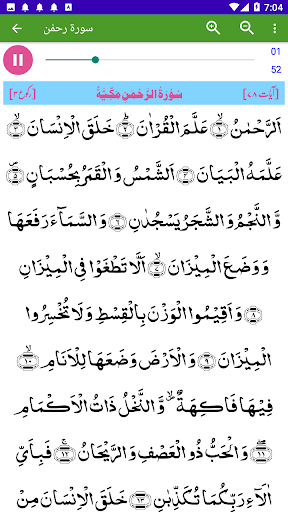 7:04
سورة رحمٰن
01
52
[آیات ۷۸] سُوْرَةُ الرَّحْمٰنِ مَكِّيَّةٌ [رکوع ۳]
اَلرَّحْمٰنُ ۝۱ عَلَّمَ الْقُرْاٰنَ ۝۲ خَلَقَ الْاِنْسَانَ ۝۳
عَلَّمَهُ الْبَيَانَ ۝۴ اَلشَّمْسُ وَالْقَمَرُ بِحُسْبَانٍ ۝۵
وَّالنَّجْمُ وَالشَّجَرُ يَسْجُدٰنِ ۝۶ وَالسَّمَآءَ رَفَعَهَا
وَوَضَعَ الْمِيْزَانَ ۝۷ اَلَّا تَطْغَوْا فِى الْمِيْزَانِ
۝۸ وَاَقِيْمُوا الْوَزْنَ بِالْقِسْطِ وَلَا تُخْسِرُوا
الْمِيْزَانَ ۝۹ وَالْاَرْضَ وَضَعَهَا لِلْاَنَامِ ۝۱۰
فِيْهَا فَاكِهَةٌ ۙ وَّالنَّخْلُ ذَاتُ الْاَكْمَامِ
۝۱۱ وَالْحَبُّ ذُو الْعَصْفِ وَالرَّيْحَانُ ۝۱۲ فَبِاَيِّ
اٰلَآءِ رَبِّكُمَا تُكَذِّبٰنِ ۝۱۳ خَلَقَ الْاِنْسَانَ مِنْ